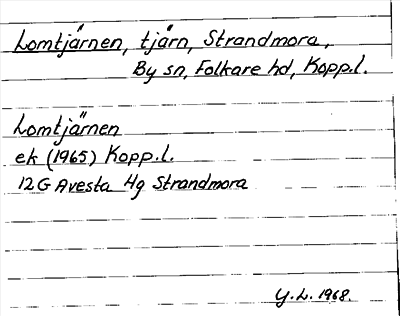 Lomtjärnen, tjärn, Strandmora,
By sn, Folkare hd, Kopp.l.
Lomtjärnen
ek (1965) Kopp.l.
12G Avesta 4g Strandmora
Y.L. 1968.